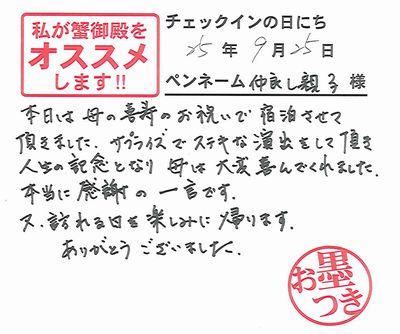 私が蟹御殿を
オススメ
します!!
チェックインの日にち
25年9月25日
ペンネーム 仲良し親子 様
本日は母の喜寿のお祝いで宿泊させて
頂きました。サプライズでステキな演出をして頂き
人生の記念となり母は大変喜んでくれました。
本当に感謝の一言です。
又、訪れる日を楽しみに帰ります。
ありがとうございました。
お墨つき